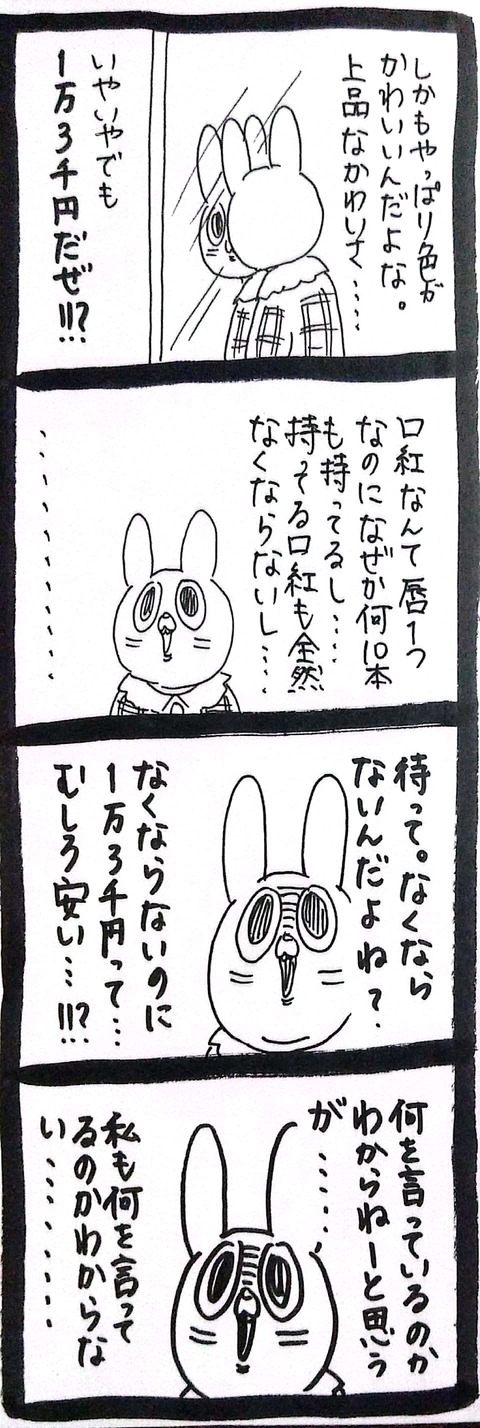 しかもやっぱり色が
かわいいんだよな。
上品なかわいさ‥‥
いやいやでも
1万3千円だぜ!!?
口紅なんて唇1つ
なのになぜか何10本
も持ってるし‥‥
持ってる口紅も全然
なくならないし‥‥
‥‥‥‥‥‥
待って。なくなら
ないんだよね？
なくならないのに
1万3千円って‥‥
むしろ安い‥‥!!?
何を言っているのか
わからねーと思う
が‥‥‥
私も何を言って
るのかわからな
い‥‥‥‥‥